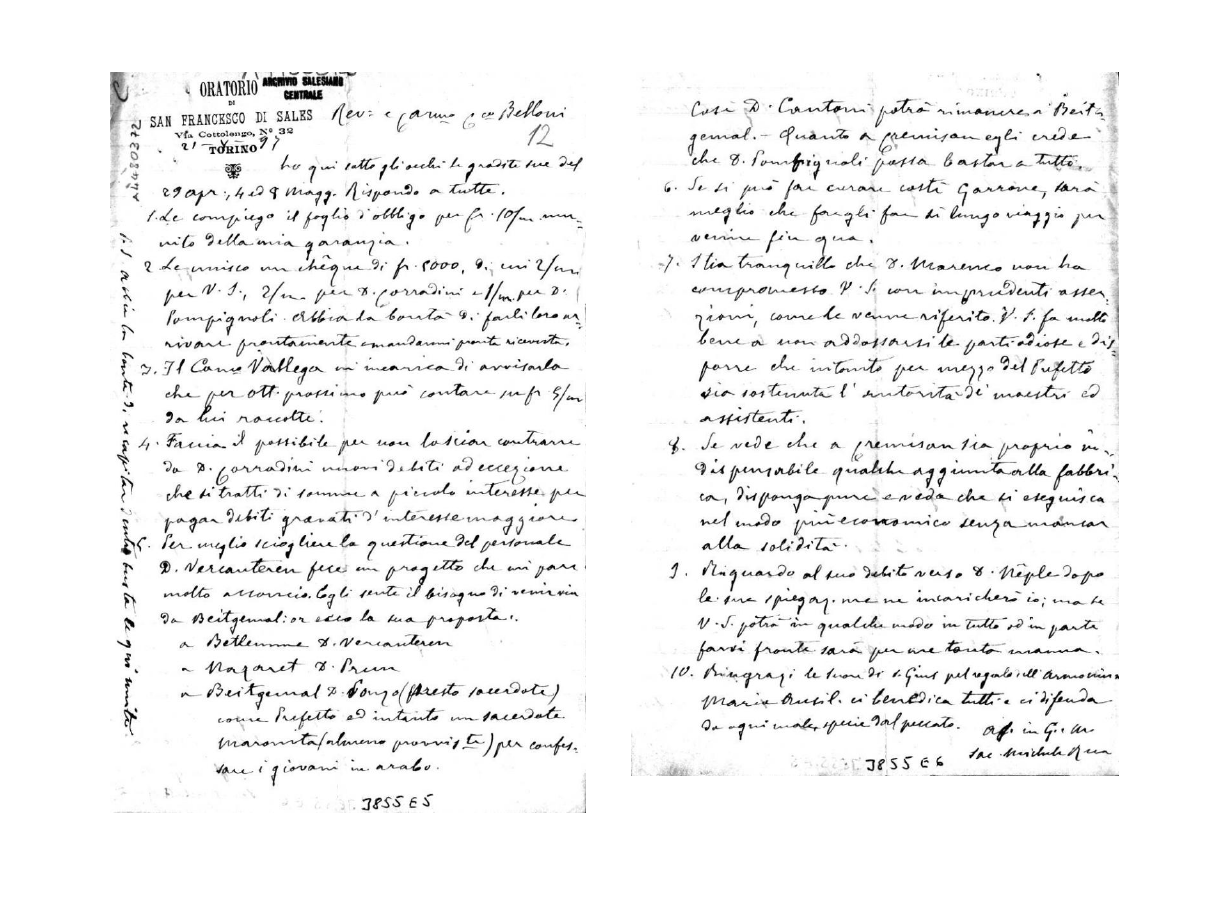 ARCHIVIO SALESIANO
CENTRALE
ORATORIO
DI
SAN FRANCESCO DI SALES
Via Cottolengo, Nº 32
TORINO
21 - V - 97
Rev: e Carmo Belloni
12
ho qui sotto gli occhi le gradite sue del
29 apr:, 4 ed 8 Magg. Rispondo a tutte.
1. Le compiego il foglio d'obbligo per fr. 10/m mu-
nito della mia garanzia.
2 Le unisco un chèque di fr. 5000, di cui 2/m
per V. S., 2/m per D. Corradini e 1/m per D.
Pompignoli. Abbia la bontà di farli loro ar-
rivare prontamente e mandarmi pronta ricevuta.
3. Il Canco Vallega m'incarica di avvisarla
che per ott. prossimo può contare su fr. 5/m
da lui raccolti.
4. Faccia il possibile per non lasciar contrarre
da D. Corradini nuovi debiti ad eccezione
che si tratti di somme a piccolo interesse per
pagar debiti gravati d'interesse maggiore.
5. Per meglio sciogliere la questione del personale
D. Vercauteren fece un progetto che mi pare
molto assennato. Egli sente il bisogno di venir via
da Beitgemal: or ecco la sua proposta:
a Betlemme D. Vercauteren
a Nazaret D. Prun
a Beitgemal D. Ponzo (presto sacerdote)
come Prefetto ed intanto un sacerdote
Maronita (almeno provvis.te) per confes-
sare i giovani in arabo.
J855E5
27208044
P.S. Abbia la bontà di recapitar l'unita busta le qui unite
Così D. Cantoni potrà rimanere a Beit-
gemal. - Quanto a Cremisan egli crede
che D. Pompignoli possa bastar a tutto.
6. Se si può far curare costì Garrone, sarà
meglio che fargli fare sì lungo viaggio per
venire fin qua.
7. Stia tranquillo che D. Marenco non ha
compromesso V. S. con imprudenti asser-
zioni, come le venne riferito. V. S. fa molto
bene a non addossarsi le parti odiose e dis-
porre che intanto per mezzo del Prefetto
sia sostenuta l'autorità di maestri ed
assistenti.
8. Se vede che a Cremisan sia proprio in-
dispensabile qualche aggiunta alla fabbri-
ca, disponga pure e veda che si eseguisca
nel modo più economico senza mancar
alla solidità.
9. Riguardo al suo debito verso D. Nèple dopo
le sue spiegaz. me ne incaricherò io; ma se
V. S. potrà in qualche modo in tutto od in parte
farvi fronte sarà per me tanta manna.
10. Ringrazi le suore di S. Gius. pel regalo dell'
Maria Ausil. ci benedica tutti e ci difenda
da ogni male, specie dal peccato.
aff. in G. e M.
Sac. Michele Rua
J855E6